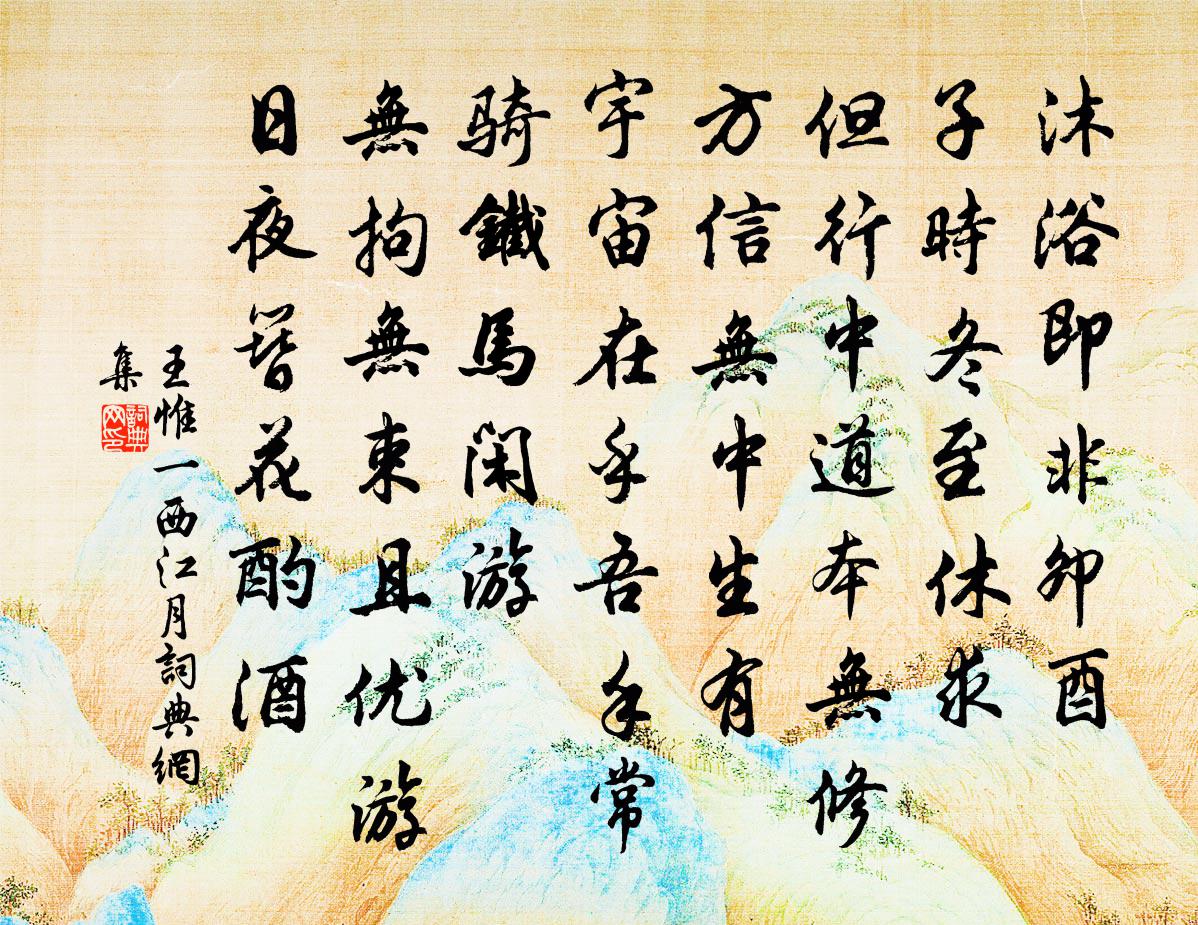 沐浴即非卯酉
子時冬至休求
但行中道本無修
方信無中生有
宇宙在乎吾手常
騎鐵馬閑游
無拘無束且优游
日夜簪花酌酒
王惟一西江月詞典網
集
詞典
网印